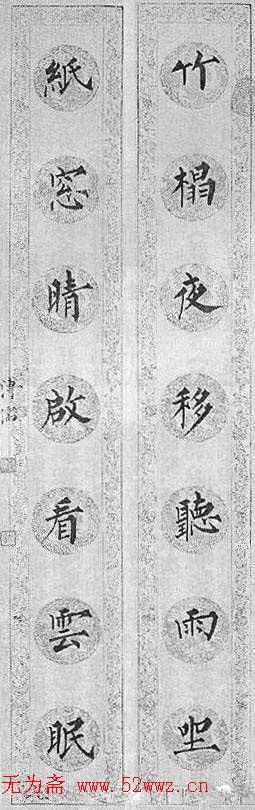 竹榻夜移聽雨坐
紙窓晴啟看雲眠
无为斋 www.52wwz.cn